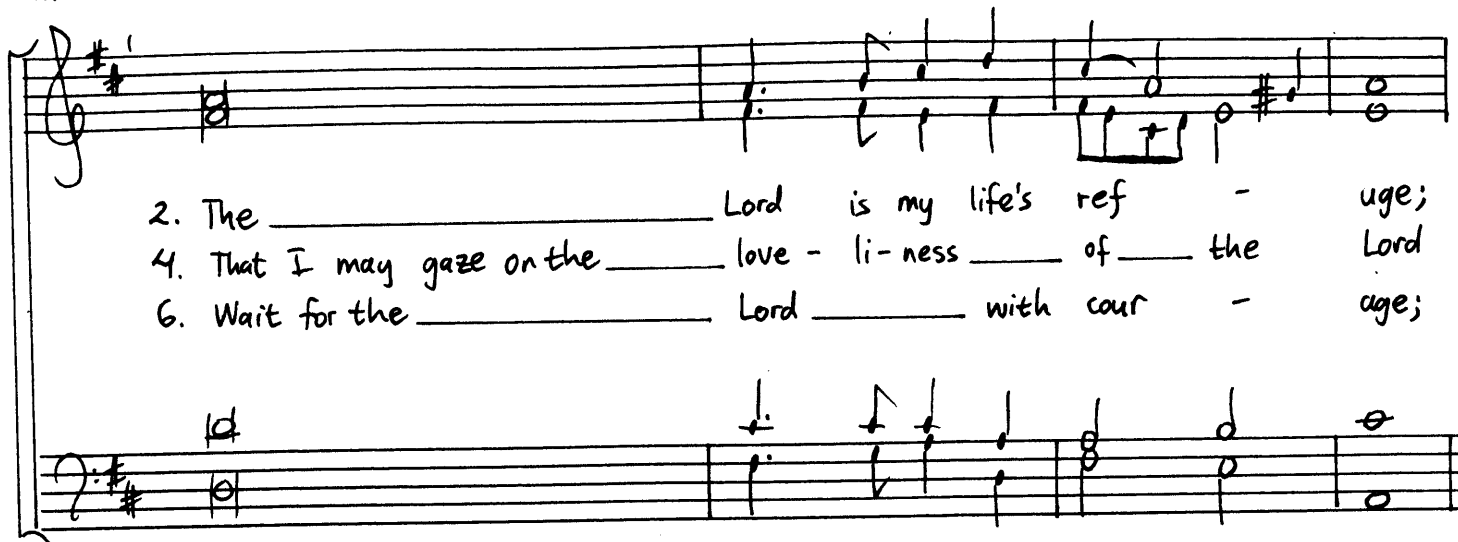 2. The ____________ Lord is my life's ref - uge;
4. That I may gaze on the ____ love - li - ness ____ of ____ the Lord
6. Wait for the ____________ Lord ____ with cour - age;